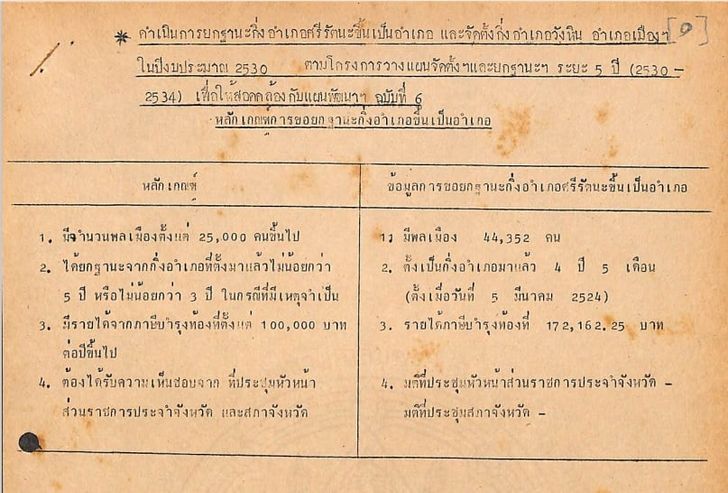 * ดำเนินการยกฐานะกิ่งอำเภอศรีรัตนะขึ้นเป็นอำเภอ และจัดตั้งกิ่งอำเภอวังหิน อำเภอเมืองฯ
ในปีงบประมาณ 2530 ตามโครงการวางแผนจัดตั้งฯและยกฐานะฯ ระยะ 5 ปี (2530 -
2534) เพื่อให้สอดคล้องกับแผนพัฒนาฯ ฉบับที่ 6
หลักเกณฑ์การขอยกฐานะกิ่งอำเภอขึ้นเป็นอำเภอ
หลักเกณฑ์
1. มีจำนวนพลเมืองตั้งแต่ 25,000 คนขึ้นไป
2. ได้ยกฐานะจากกิ่งอำเภอที่ตั้งมาแล้วไม่น้อยกว่า
5 ปี หรือไม่น้อยกว่า 3 ปี ในกรณีที่มีเหตุจำเป็น
3. มีรายได้จากภาษีบำรุงท้องที่ตั้งแต่ 100,000 บาท
ต่อปีขึ้นไป
4. ต้องได้รับความเห็นชอบจาก ที่ประชุมหัวหน้า
ส่วนราชการประจำจังหวัด และสภาจังหวัด
ข้อมูลการขอยกฐานะกิ่งอำเภอศรีรัตนะขึ้นเป็นอำเภอ
1. มีพลเมือง 44,352 คน
2. ตั้งเป็นกิ่งอำเภอมาแล้ว 4 ปี 5 เดือน
(ตั้งเมื่อวันที่ 5 มีนาคม 2524)
3. รายได้ภาษีบำรุงท้องที่ 172,162.25 บาท
4. มติที่ประชุมหัวหน้าส่วนราชการประจำจังหวัด -
มติที่ประชุมสภาจังหวัด -